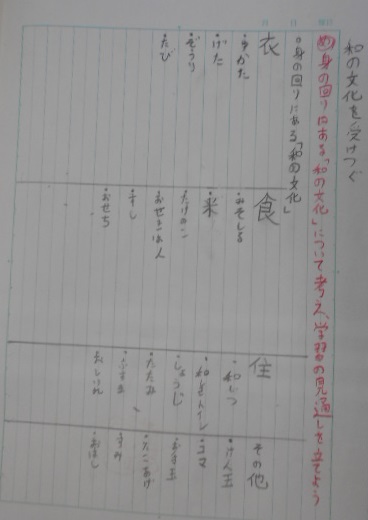 和の文化を受けつぐ
め 身の回りにある「和の文化」について考え、学習の見通しを立てよう
○身の回りにある「和の文化」
衣
・ゆかた
・げた
・ぞうり
・たび
食
・みそしる
・米
・たけのこ
・すし
・おせち
住
・和しつ
・しょうじ
・たたみ
・ふすま
・おしいれ
その他
・けん玉
・コマ
・お手玉
・たこあげ
・すみ
・おはし